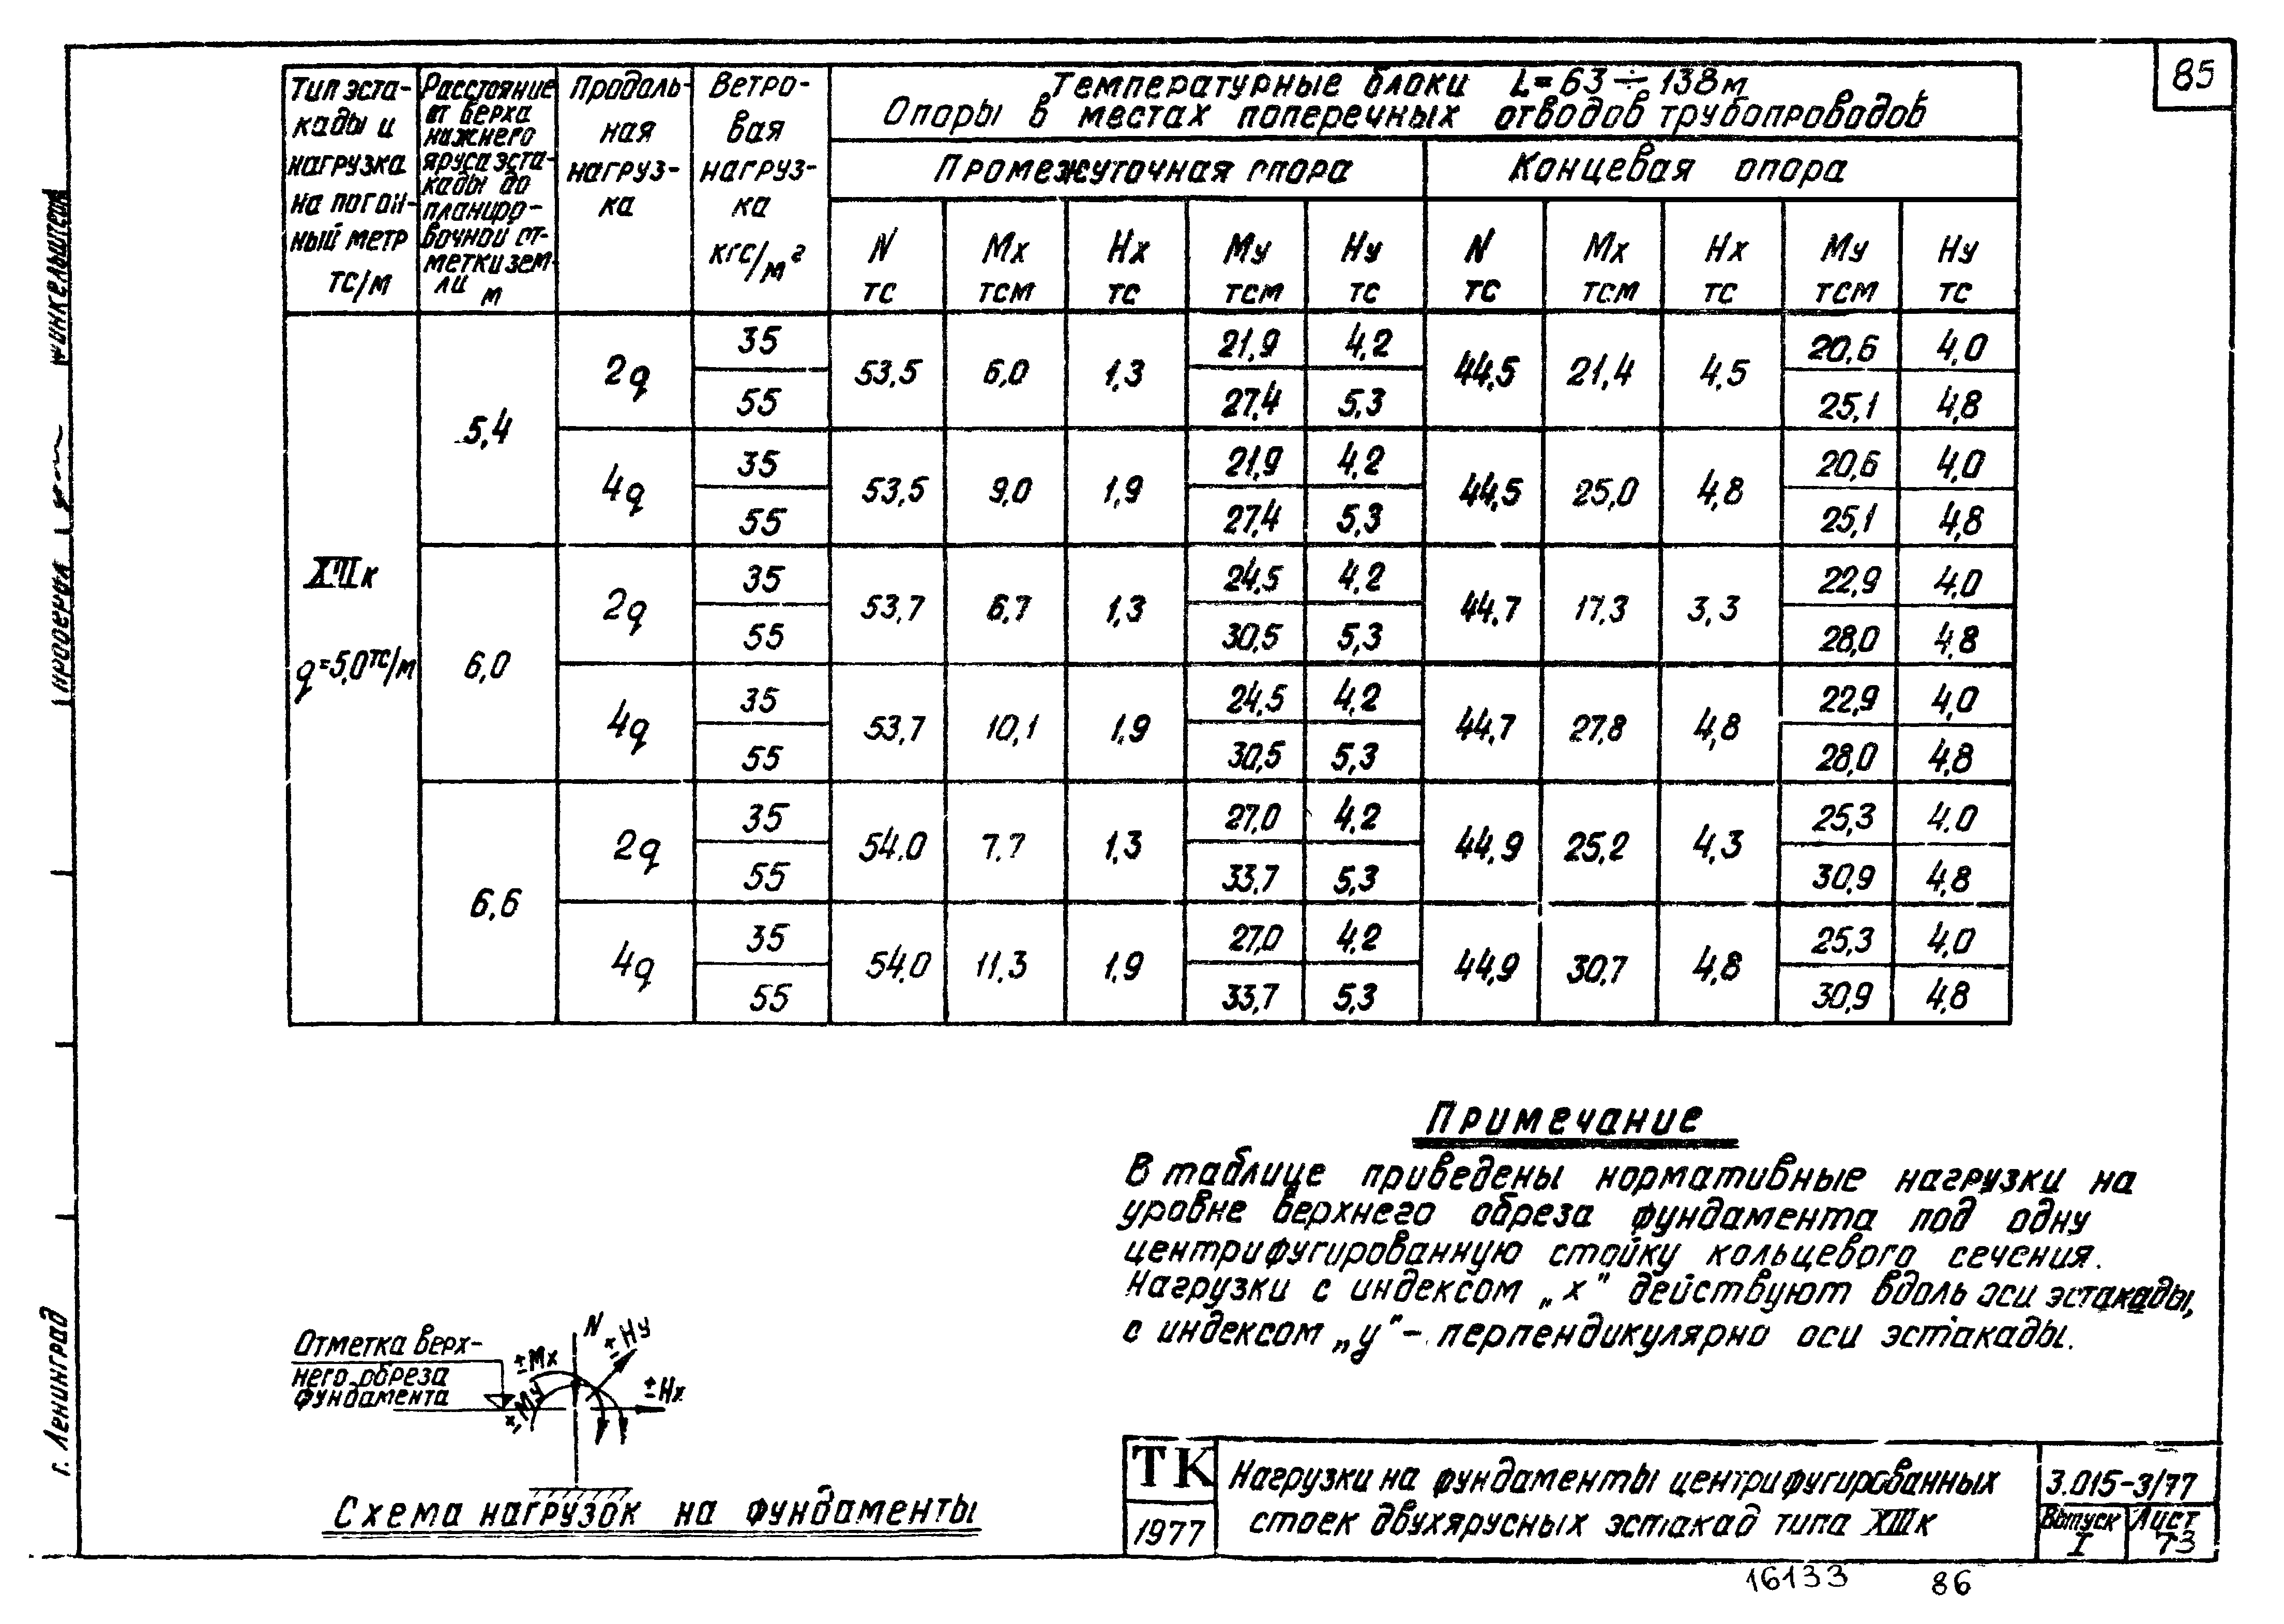 85
Тип эста-
кады и
нагрузка
на погон-
ный метр
тс/м
Расстояние
от верха
нижнего
яруса эста-
кады до
планиро-
вочной от-
метки зем-
ли м
Продоль-
ная
нагруз-
ка
Ветро-
вая
нагруз-
ка
кгс/м²
Температурные блоки L=63÷138м
Опоры в местах поперечных отводов трубопроводов
Промежуточная опора
Концевая опора
N тс
Мх тсм
Нх тс
Му тсм
Ну тс
N тс
Мх тсм
Нх тс
Му тсм
Ну тс
XIIIк
q=5,0тс/м
5,4
2q 35 53,5 6,0 1,3 21,9 4,2 44,5 21,4 4,5 20,6 4,0
55 27,4 5,3 25,1 4,8
4q 35 53,5 9,0 1,9 21,9 4,2 44,5 25,0 4,8 20,6 4,0
55 27,4 5,3 25,1 4,8
6,0
2q 35 53,7 6,7 1,3 24,5 4,2 44,7 17,3 3,3 22,9 4,0
55 30,5 5,3 28,0 4,8
4q 35 53,7 10,1 1,9 24,5 4,2 44,7 27,8 4,8 22,9 4,0
55 30,5 5,3 28,0 4,8
6,6
2q 35 54.0 7.7 1,3 27,0 4,2 44,9 25,2 4,3 25,3 4.0
55 33,7 5,3 30,9 4,8
4q 35 54.0 11.3 1.9 27,0 4,2 44,9 30,7 4,8 25,3 4,0
55 33,7 5,3 30,9 4,8
Примечание
В таблице приведены нормативные нагрузки на
уровне верхнего обреза фундамента под одну
центрифугированную стойку кольцевого сечения.
Нагрузки с индексом „х" действуют вдоль оси эстакады,
с индексом „у"- перпендикулярно оси эстакады.
Отметка верх-
него обреза
фундамента
N
±Ну
±Мх
±Му
±Нх
Схема нагрузок на фундаменты
ТК
1977
Нагрузки на фундаменты центрифугированных
стоек двухярусных эстакад типа XIIIк
3.015-3/77
Выпуск
I
Лист
73
16133 86
г. Ленинград
Финкельштейн